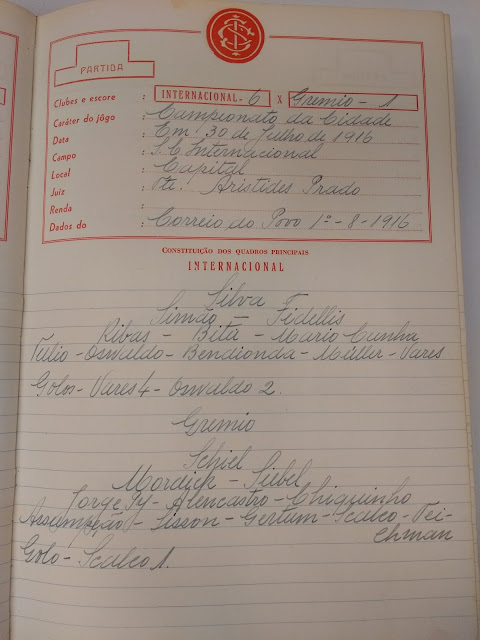 SCI
PARTIDA
Clubes e escore : INTERNACIONAL - 6 X Gremio - 1
Caráter do jôgo : Campeonato da Cidade
Data : Em! 30 de Julho de 1916
Campo : S.C. Internacional
Local : Capital
Juiz : Aristides Prado
Renda :
Dados do : Correio do Povo 1º - 8 - 1916
CONSTITUIÇÃO DOS QUADROS PRINCIPAIS
INTERNACIONAL
Silva
Simão - Fidellis
Ribas - Bitú - Mario Cunha
Túlio - Oswaldo - Bendionda - Müller - Vares
Golos - Vares 4 - Oswaldo 2.
Gremio
Schiel
Mordick - Sibel
Jorge Py - Alencastro - Chiquinho
Assumpção - Sisson - Gertum - Scalco - Tei-
chman
Golo - Scalco 1.